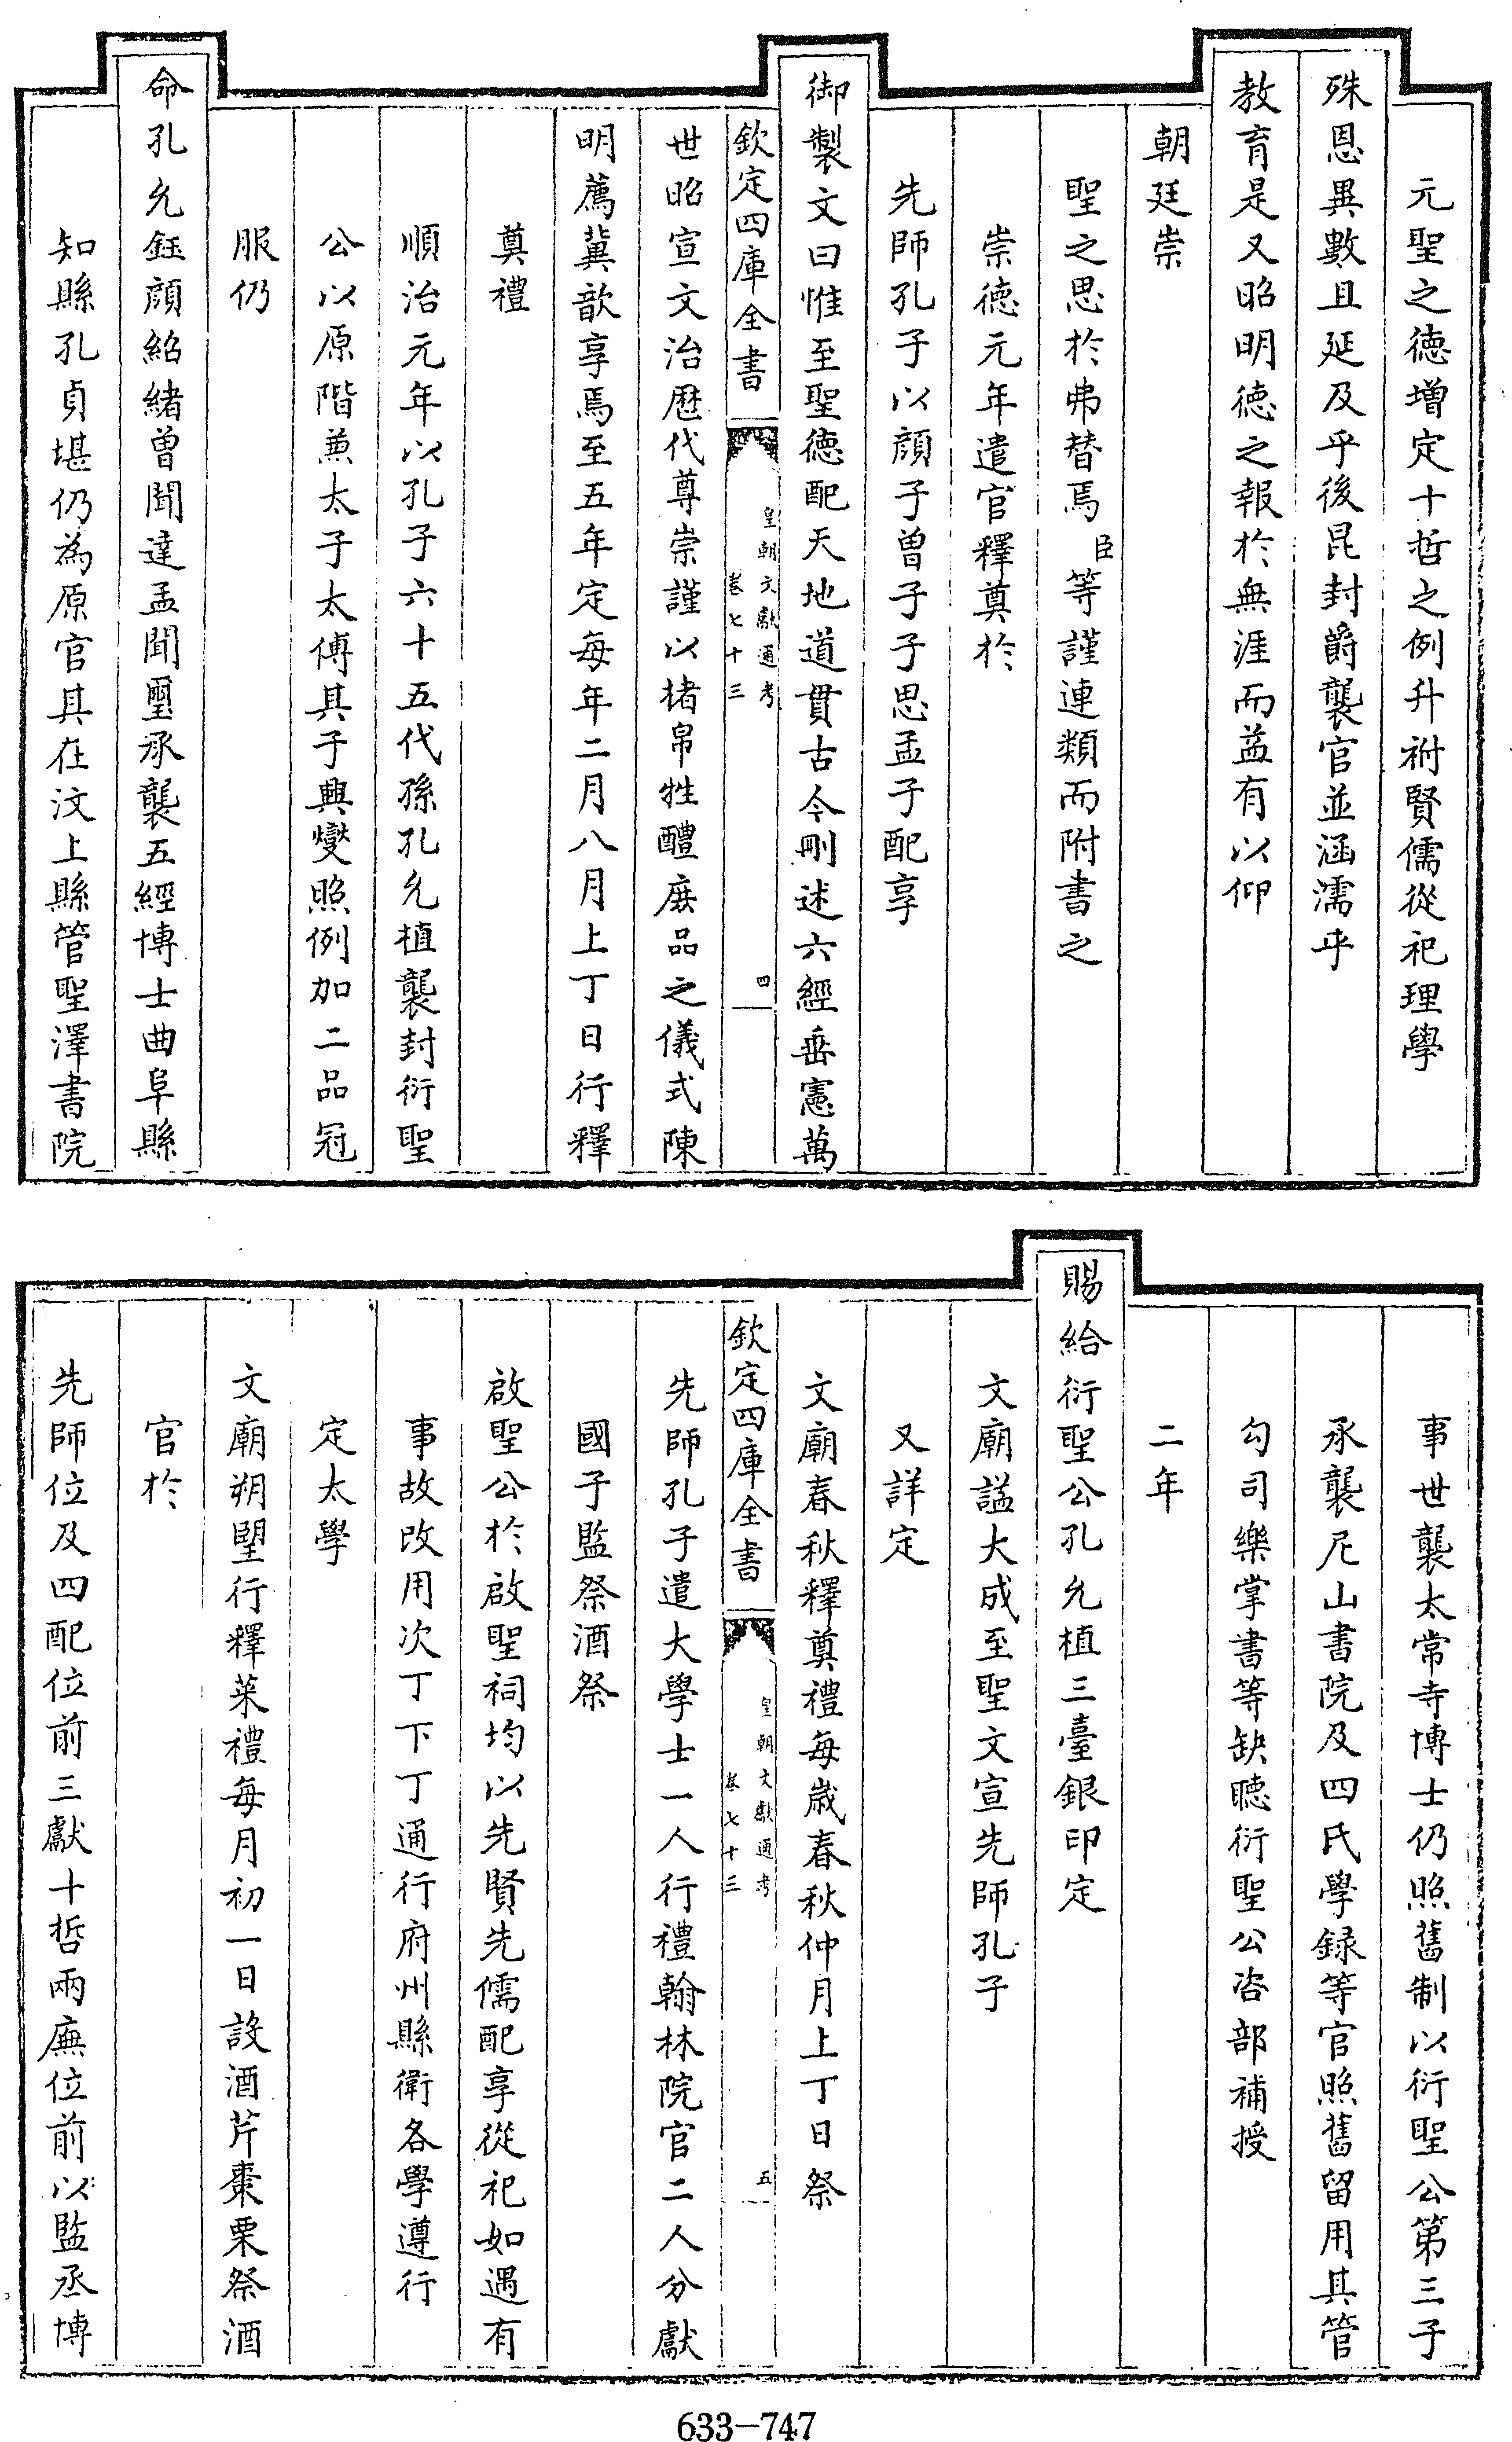 元聖之德增定十哲之例升祔賢儒從祀理學
殊恩異數且延及乎後昆封爵襲官並涵濡乎
教育是又昭明德之報於無涯而益有以仰
朝廷崇
聖之思於弗替焉臣等謹連類而附書之
崇德元年遣官釋奠於
先師孔子以顔子曽子子思孟子配享
御製文曰惟至聖德配天地道貫古今刪述六經垂憲萬
欽定四庫全書
皇朝文獻通考
卷七十三
四
世昭宣文治歴代尊崇謹以楮帛牲醴庶品之儀式陳
明薦冀歆享焉至五年定每年二月八月上丁日行釋
奠禮
順治元年以孔子六十五代孫孔允植襲封衍聖
公以原階兼太子太傅其子興燮照例加二品冠
服仍
命孔允鈺顔紹緒曽聞達孟聞璽承襲五經博士曲阜縣
知縣孔貞堪仍為原官其在汶上縣管聖澤書院
事世襲太常寺博士仍照舊制以衍聖公第三子
承襲尼山書院及四氏學録等官照舊留用其管
勾司樂掌書等缺聽衍聖公咨部補授
二年
賜給衍聖公孔允植三臺銀印定
文廟謚大成至聖文宣先師孔子
又詳定
文廟春秋釋奠禮每歲春秋仲月上丁日祭
欽定四庫全書
皇朝文獻通考
卷七十三
五
先師孔子遣大學士一人行禮翰林院官二人分獻
國子監祭酒祭
啟聖公於啟聖祠均以先賢先儒配享從祀如遇有
事故改用次丁下丁通行府州縣衛各學遵行
定太學
文廟朔望行釋菜禮每月初一日設酒芹棗栗祭酒
官於
先師位及四配位前三獻十哲兩廡位前以監丞博
633-747